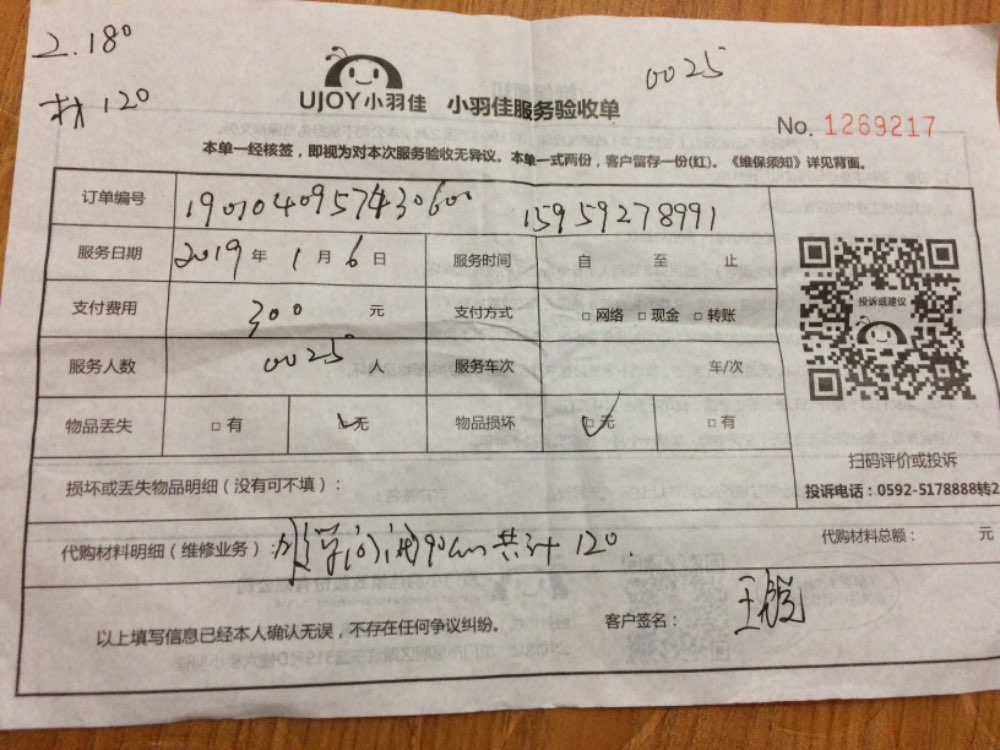 2.180
材 120
0025
UJOY小羽佳 小羽佳服务验收单
No. 1269217
本单一经核签，即视为对本次服务验收无异议。本单一式两份，客户留存一份(红)。《维保须知》详见背面。
订单编号 1901040957430600 15959278991
服务日期 2019年 1月 6日 服务时间 自 至 止
支付费用 300 元 支付方式 □ 网络 □ 现金 □ 转账
服务人数 0025 人 服务车次 车/次
物品丢失 □ 有 ✓无 物品损坏 ✓无 □ 有
投诉或建议
扫码评价或投诉
投诉电话：0592-5178888转2
损坏或丢失物品明细（没有可不填）：
代购材料明细（维修业务）： 90cm 共计 120. 代购材料总额： 元
以上填写信息已经本人确认无误，不存在任何争议纠纷。 客户签名： 王